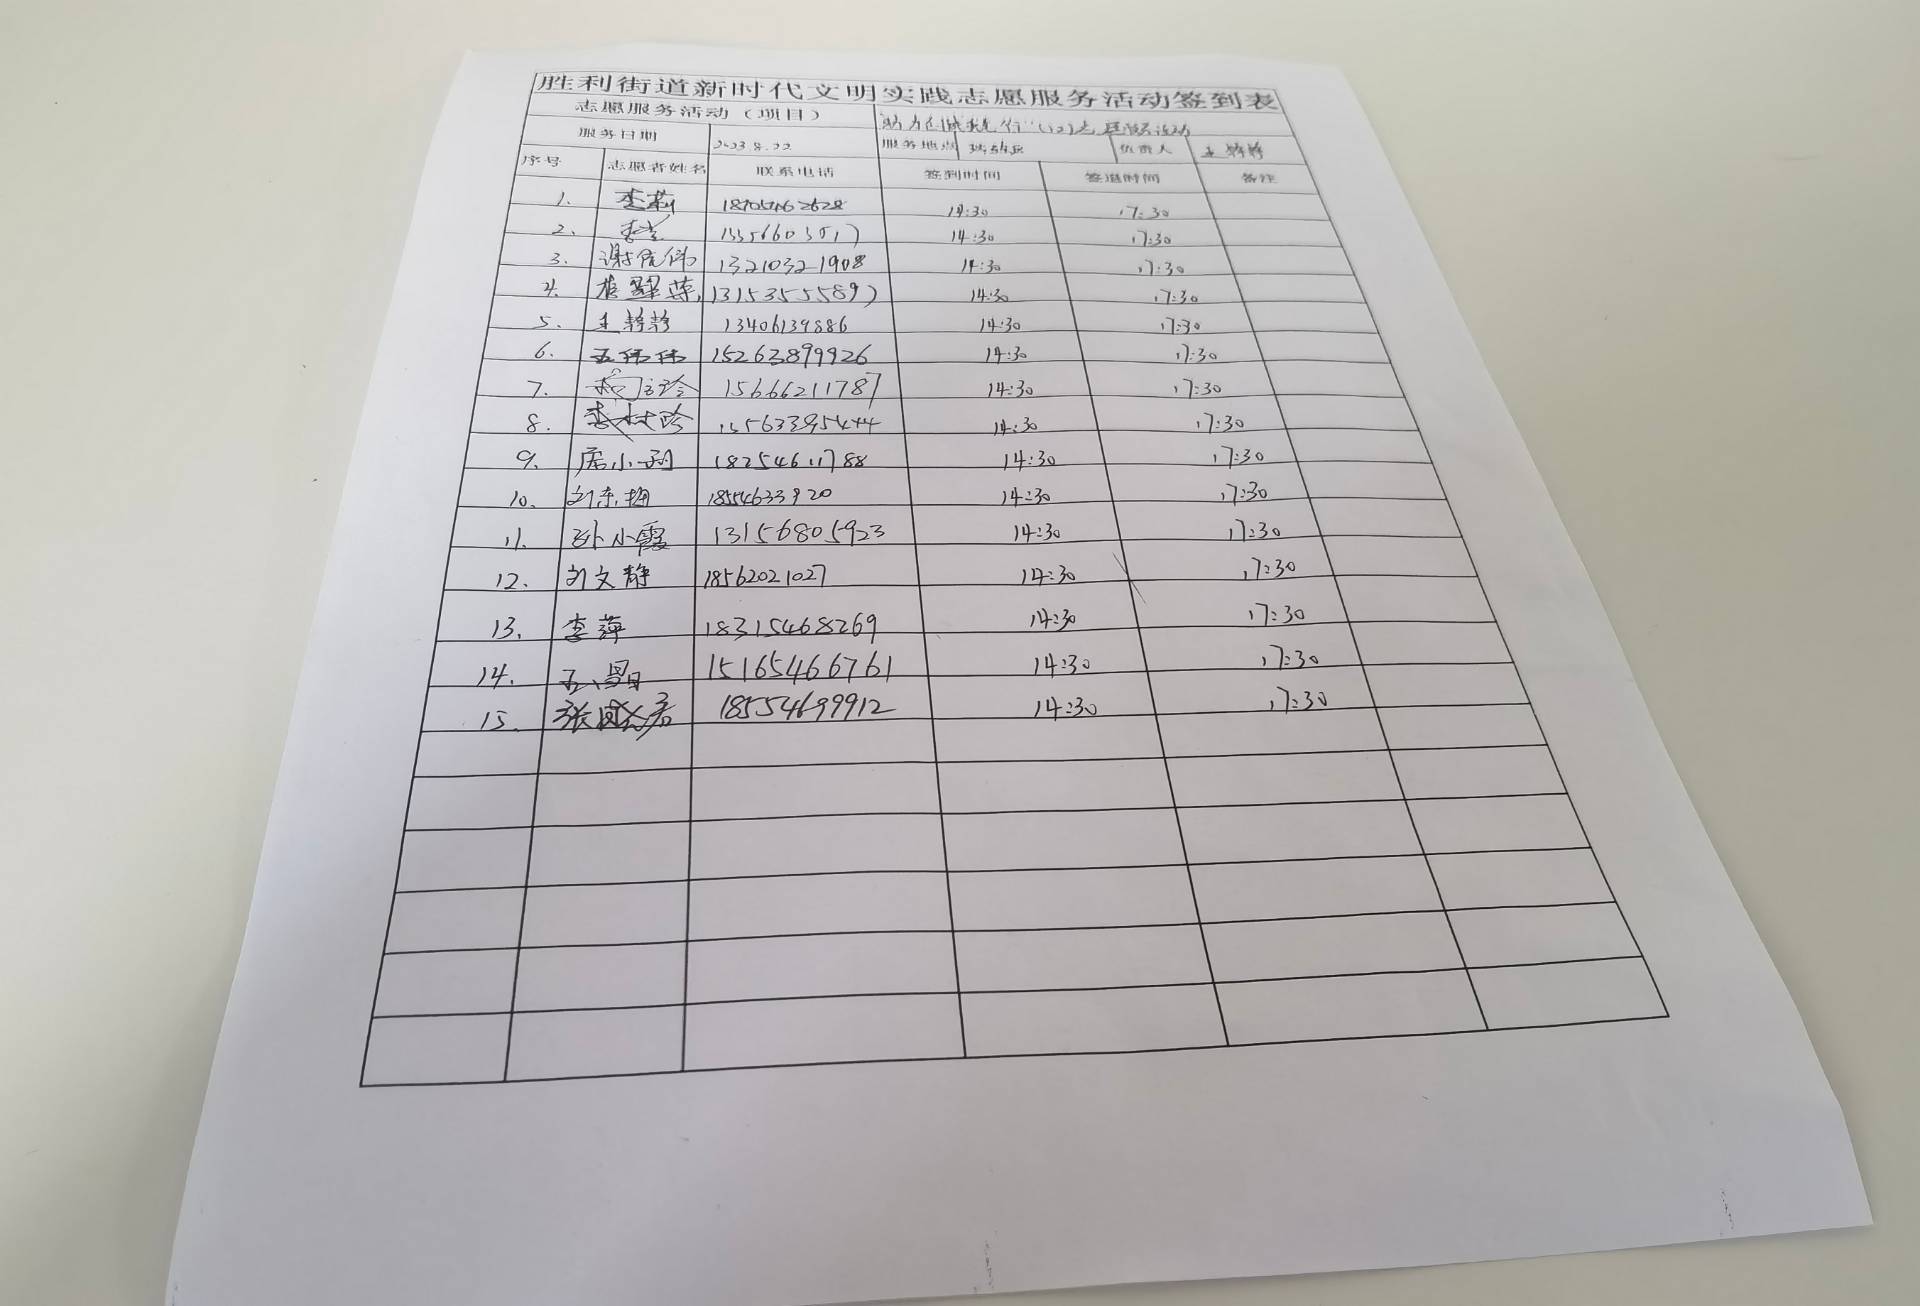 胜利街道新时代文明实践志愿服务活动签到表
志愿服务活动（项目） 助力创城我先行
服务日期 2023.8.22 服务地点 负责人 王静静
序号 志愿者姓名 联系电话 签到时间 签退时间 备注
1. 李莉 14:30 17:30
2. 14:30 17:30
3. 13210321908 14:30 17:30
4. 13153555897 14:30 17:30
5. 王静静 13406139886 14:30 17:30
6. 王伟伟 15263899926 14:30 17:30
7. 15666211787 14:30 17:30
8. 15563395444 14:30 17:30
9. 18254611788 14:30 17:30
10. 刘东梅 18554633920 14:30 17:30
11. 孙小霞 13156805923 14:30 17:30
12. 刘文静 18562021027 14:30 17:30
13. 李萍 18315468269 14:30 17:30
14. 15165466761 14:30 17:30
15. 18554699912 14:30 17:30